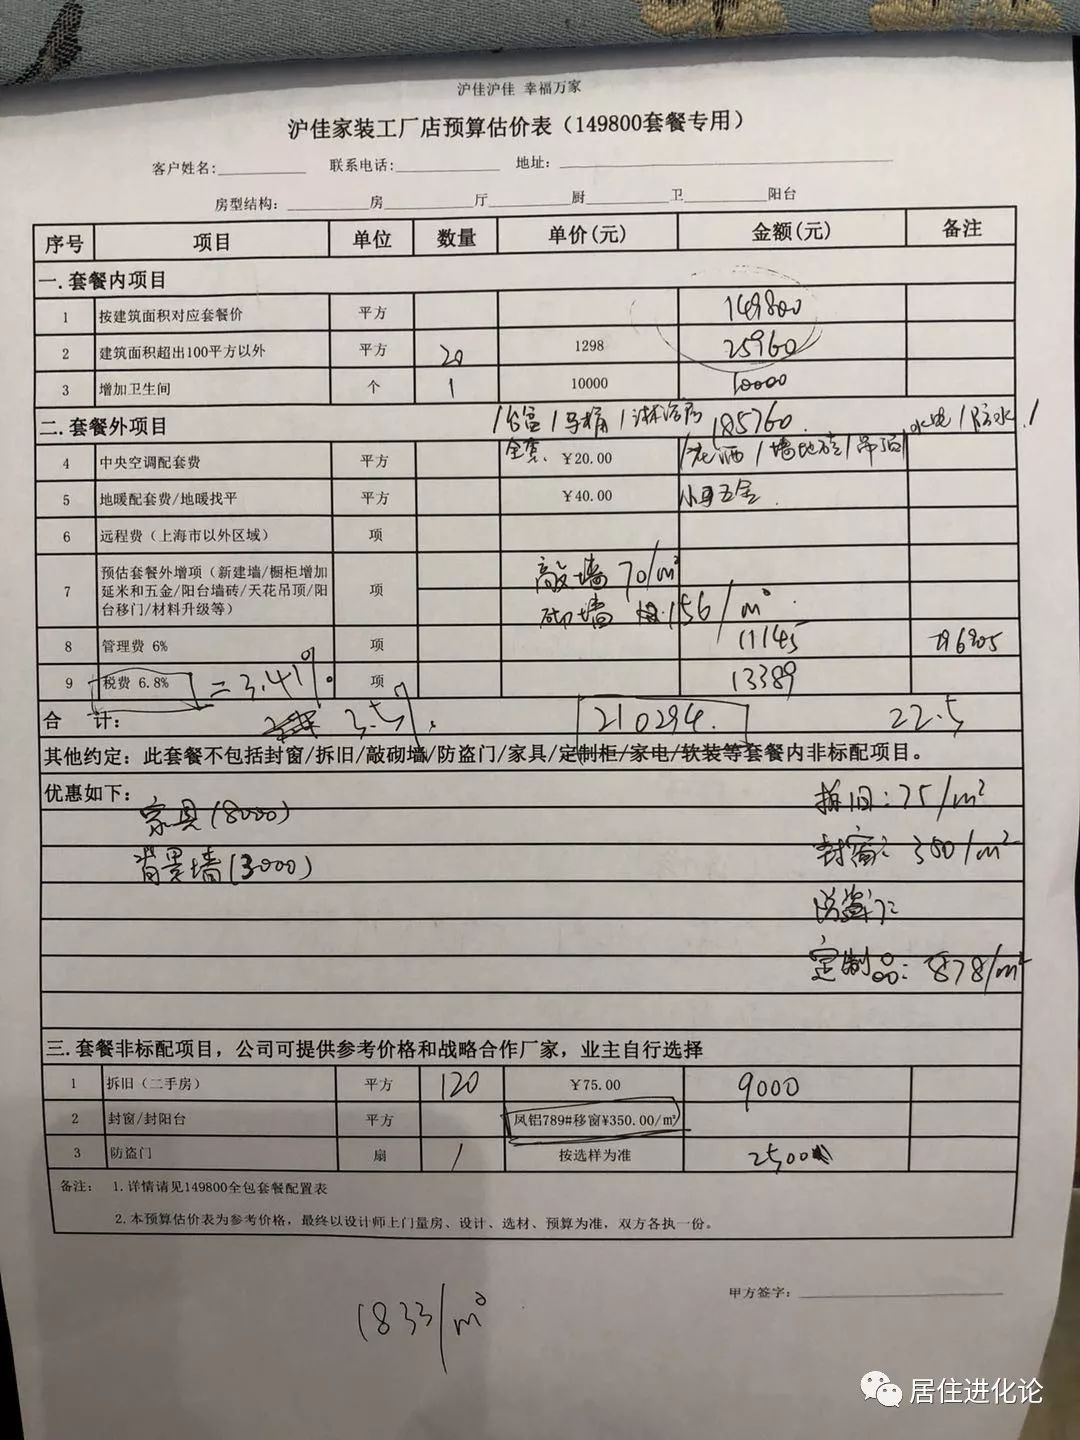 沪佳沪佳 幸福万家
沪佳家装工厂店预算估价表（149800套餐专用）
客户姓名: 联系电话: 地址:
房型结构: 房 厅 厨 卫 阳台
序号 项目 单位 数量 单价(元) 金额(元) 备注
一.套餐内项目
1 按建筑面积对应套餐价 平方 149800
2 建筑面积超出100平方以外 平方 20 1298 25960
3 增加卫生间 个 1 10000 10000
二.套餐外项目 / 马桶 / 淋浴房 185760 水电 / 防水 /
4 中央空调配套费 平方 全套 ￥20.00 / 花洒 / 墙地砖 / 吊顶
5 地暖配套费/地暖找平 平方 ￥40.00 五金
6 远程费（上海市以外区域） 项
7 预估套餐外增项（新建墙/橱柜增加延米和五金/阳台墙砖/天花吊顶/阳台移门/材料升级等） 项 敲墙 70/m²
砌墙 156/m²
8 管理费 6% 项 11145
9 税费 6.8% =3.41% 项 13389
合 计: 3.5% 210294. 22.5
其他约定: 此套餐不包括封窗/拆旧/敲砌墙/防盗门/家具/定制柜/家电/软装等套餐内非标配项目。
优惠如下:
家具(8000) 拆旧:75/m²
背景墙(3000) 封窗: 350/m²
定制品: 878/m²
三.套餐非标配项目，公司可提供参考价格和战略合作厂家，业主自行选择
1 拆旧（二手房） 平方 120 ￥75.00 9000
2 封窗/封阳台 平方 凤铝789#移窗¥350.00/㎡
3 防盗门 扇 1 按选样为准 2500
备注: 1.详情请见149800全包套餐配置表
2.本预算估价表为参考价格，最终以设计师上门量房、设计、选材、预算为准，双方各执一份。
甲方签字:
1833/m²
居住进化论